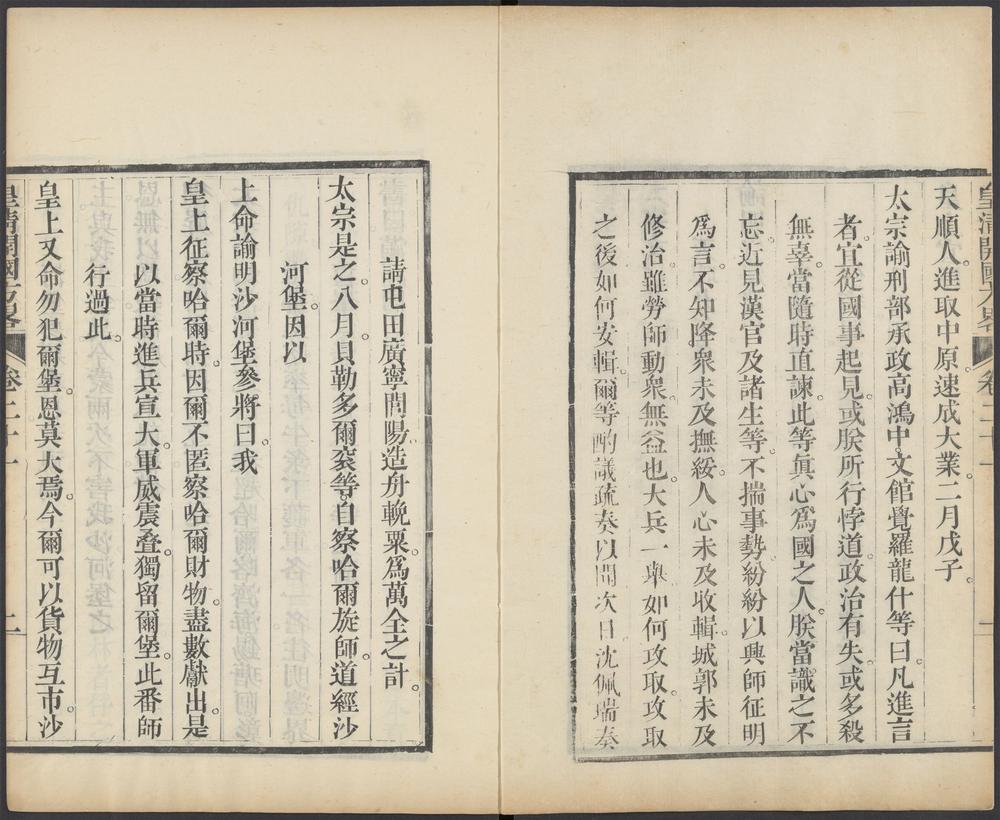 皇清開國方畧 卷二十一 二
天順人進取中原速成大業二月戊子
太宗諭刑部承政高鴻中文館覺羅龍什等曰凡進言
者宜從國事起見或朕所行悖道政治有失或多殺
無辜當隨時直諫此等眞心爲國之人朕當識之不
忘近見漢官及諸生等不揣事勢紛紛以興師征明
爲言不知降衆未及撫綏人心未及收輯城郭未及
修治雖勞師動衆無益也大兵一舉如何攻取攻取
之後如何安輯爾等酌議疏奏以聞次日沈佩瑞奏
請屯田廣寧閭陽造舟輓粟爲萬全之計
太宗是之八月貝勒多爾袞等自察哈爾旋師道經沙
河堡因以
上命諭明沙河堡參將曰我
皇上征察哈爾時因爾不匿察哈爾財物盡數獻出是
以當時進兵宣大軍威震疊獨留爾堡此番師
行過此
皇上又命勿犯爾堡恩莫大焉今爾可以貨物互市沙
皇清開國方畧 卷二十一 二